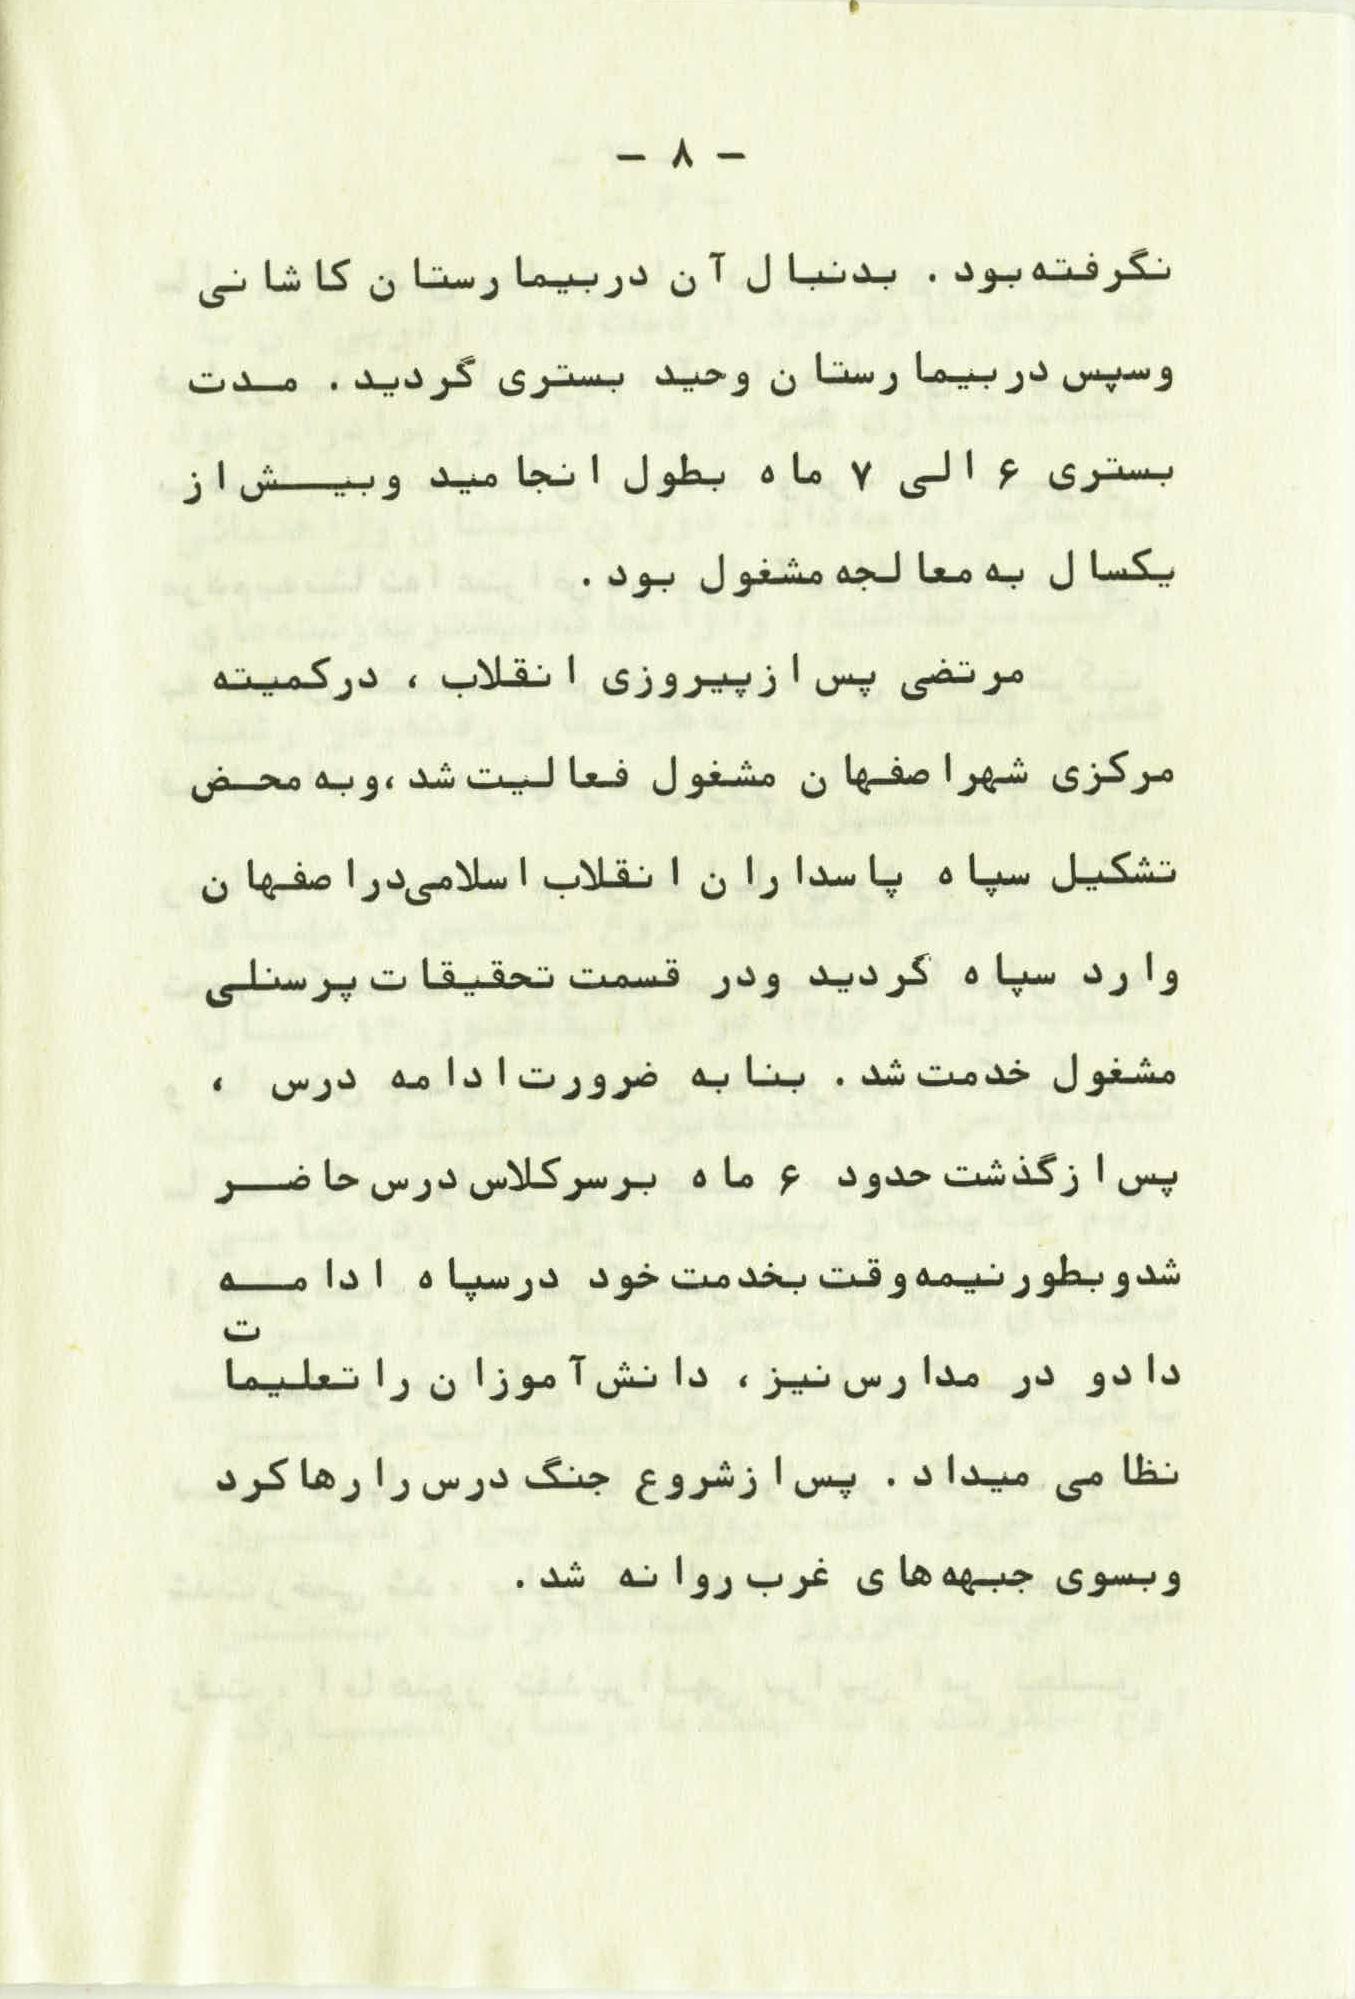 - ۸ -
نگرفته بود . بدنبال آن دربیمارستان کاشانی
وسپس دربیمارستان وحید بستری گردید . مدت
بستری ۶ الی ۷ ماه بطول انجامید وبیش از
یکسال به معالجه مشغول بود .
مرتضی پس ازپیروزی انقلاب ، درکمیته
مرکزی شهراصفهان مشغول فعالیت شد ،وبه محض
تشکیل سپاه پاسداران انقلاب اسلامی‌دراصفهان
وارد سپاه گردید ودر قسمت تحقیقات پرسنلی
مشغول خدمت شد . بنابه ضرورت ادامه درس ،
پس ازگذشت حدود ۶ ماه برسرکلاس درس حاضر
شدوبطورنیمه وقت بخدمت خود درسپاه ادامه
دادو در مدارس نیز ، دانش آموزان راتعلیمات
نظامی میداد . پس ازشروع جنگ درس رارهاکرد
وبسوی جبهه های غرب روانه شد .